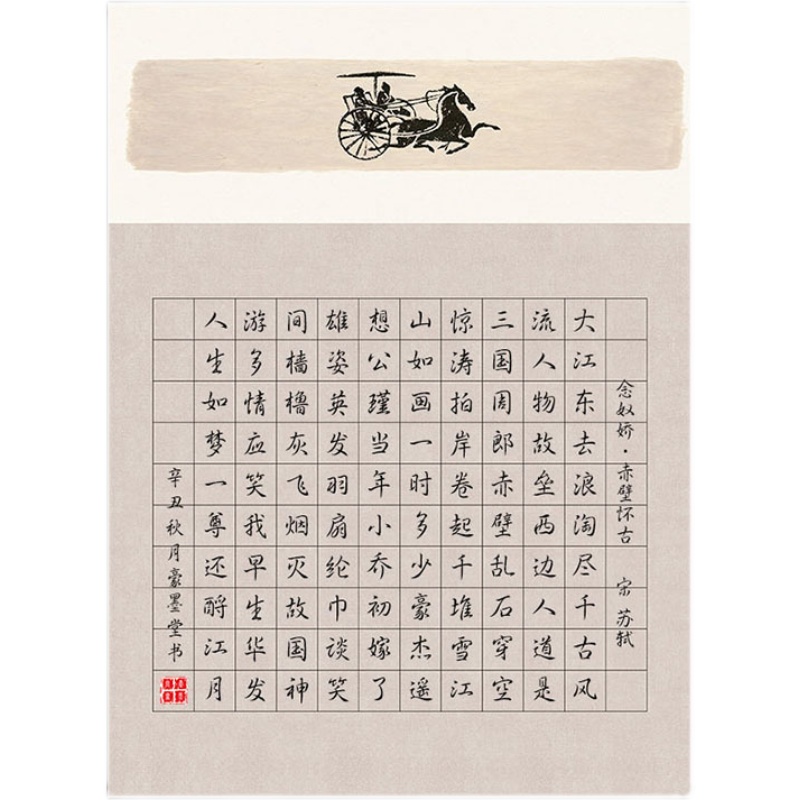 念奴娇·赤壁怀古 宋 苏轼
大江东去浪淘尽千古风
流人物故垒西边人道是
三国周郎赤壁乱石穿空
惊涛拍岸卷起千堆雪江
山如画一时多少豪杰遥
想公瑾当年小乔初嫁了
雄姿英发羽扇纶巾谈笑
间樯橹灰飞烟灭故国神
游多情应笑我早生华发
人生如梦一尊还酹江月
辛丑秋月豪墨堂书